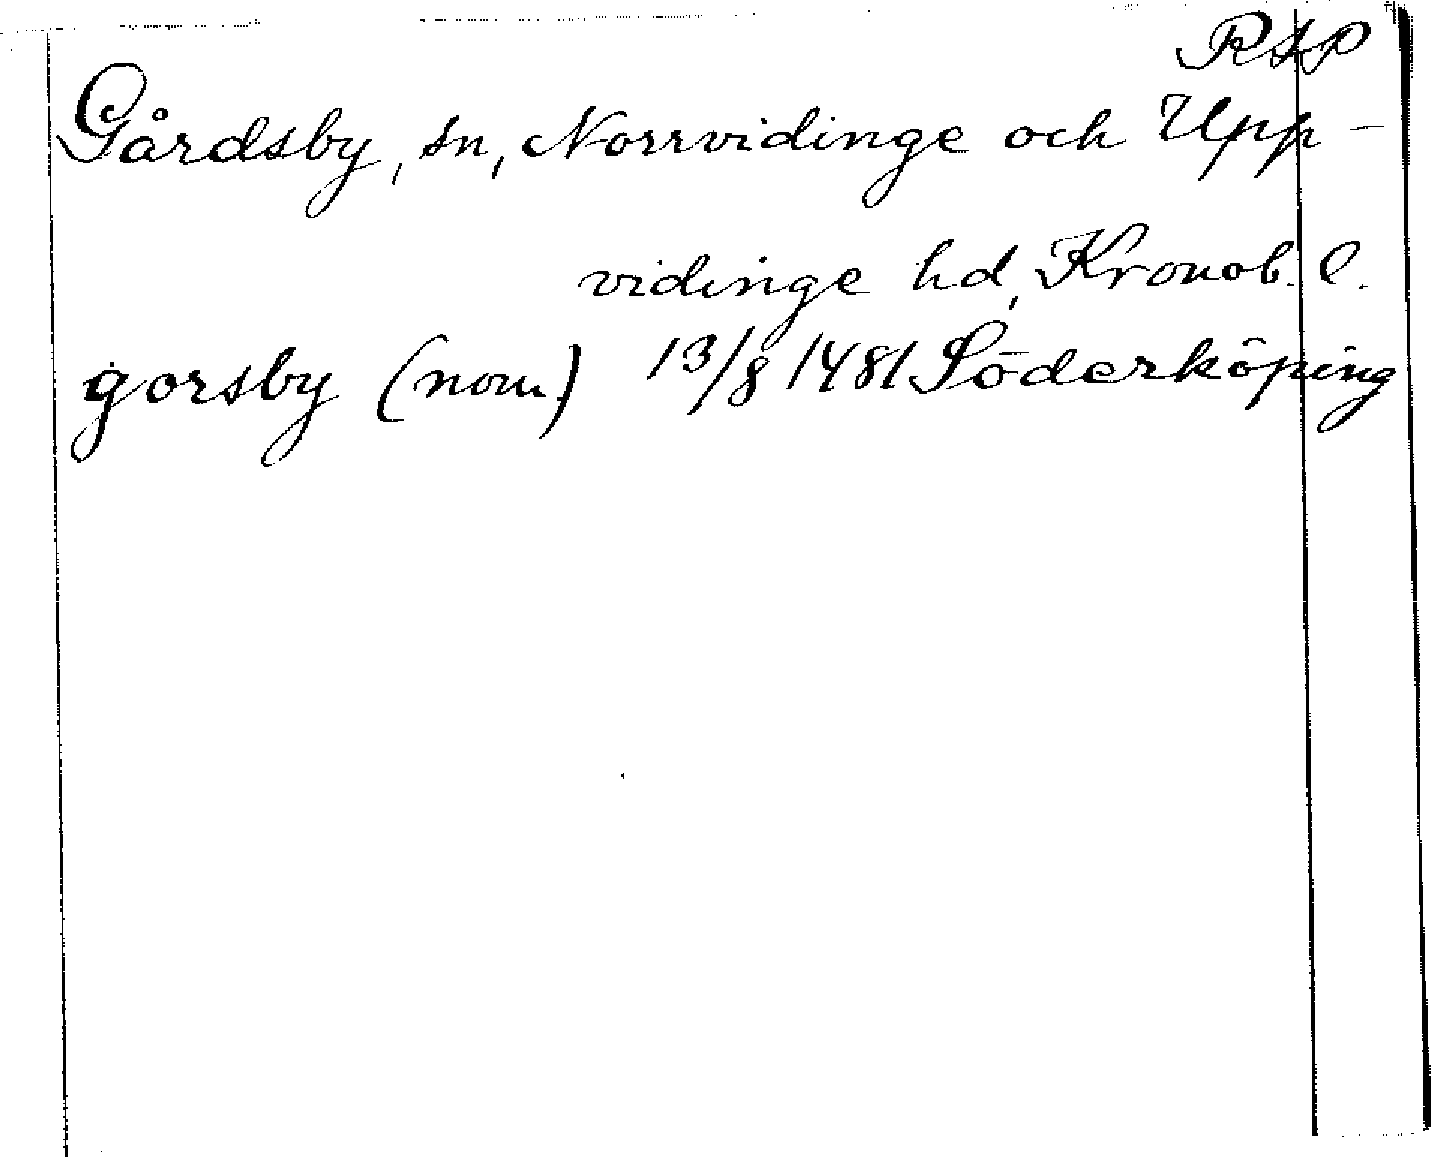 RAP
Gårdsby, sn, Norrvidinge och Upp-
vidinge hd, Kronob. l.
gorsby (nom.) 13/8 1481 Söderköping